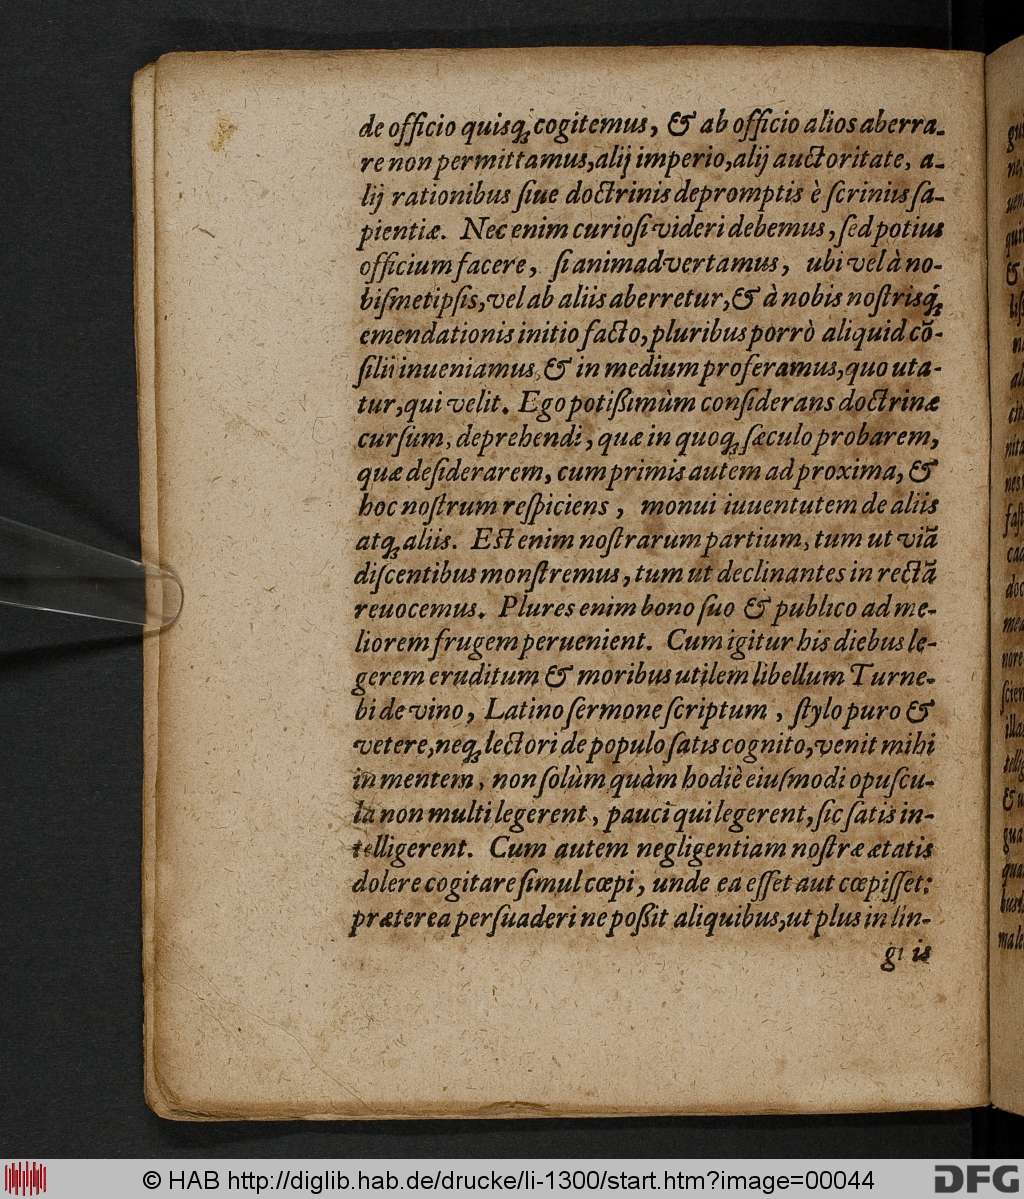 de officio quisq; cogitemus, & ab officio alios aberra-
re non permittamus, alij imperio, alij auctoritate, a-
lij rationibus ſiue doctrinis depromptis è ſcriniis ſa-
pientiæ. Nec enim curioſi videri debemus, ſed potius
officium facere, ſi animadvertamus, ubi vel à no-
biſmetipſis, vel ab aliis aberretur, & à nobis noſtrisq́;
emendationis initio facto, pluribus porrò aliquid cõ-
ſilii inueniamus, & in medium proferamus, quo uta-
tur, qui velit. Ego potißimùm conſiderans doctrinæ
curſum, deprehendi, quæ in quoq; ſæculo probarem,
quæ deſiderarem, cum primis autem ad proxima, &
hoc noſtrum reſpiciens, monui iuuentutem de aliis
atq; aliis. Eſt enim noſtrarum partium, tum ut viã
diſcentibus monſtremus, tum ut declinantes in rectã
reuocemus. Plures enim bono ſuo & publico ad me-
liorem frugem peruenient. Cum igitur his diebus le-
gerem eruditum & moribus utilem libellum Turne-
bi de vino, Latino ſermone ſcriptum, ſtylo puro &
vetere, neq; lectori de populo ſatis cognito, venit mihi
in mentem, non ſolùm quàm hodiè eiuſmodi opuſcu-
la non multi legerent, pauci qui legerent, ſic ſatis in-
telligerent. Cum autem negligentiam noſtræ ætatis
dolere cogitare ſimul cœpi, unde ea eſſet aut cœpiſſet:
præterea perſuaderi ne poßit aliquibus, ut plus in lin-
gu is
© HAB http://diglib.hab.de/drucke/li-1300/start.htm?image=00044
DFG